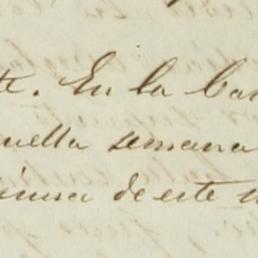 te. En la Cas
uella semana
de este